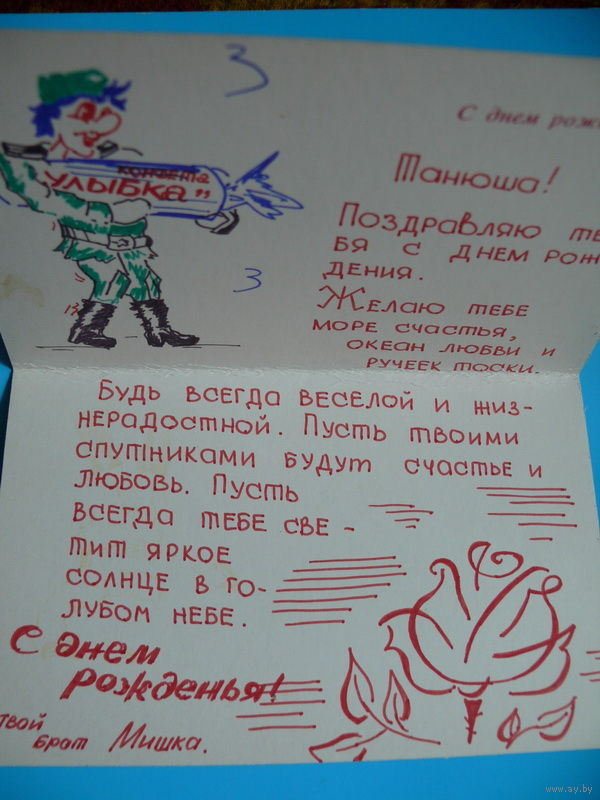 3
С днем рож
КОНФЕТА
УЛЫБКА"
Танюша!
Поздравляю те
бя с днем рож
дения.
3
Желаю тебе
море счастья,
океан любви и
ручеек тоски.
13
Будь всегда веселой и жиз-
нерадостной. Пусть твоими
спутниками будут счастье и
любовь. Пусть
всегда тебе све-
тит яркое
солнце в го-
лубом небе.
С днем
рожденья!
твой
брат Мишка.
www.ay.by